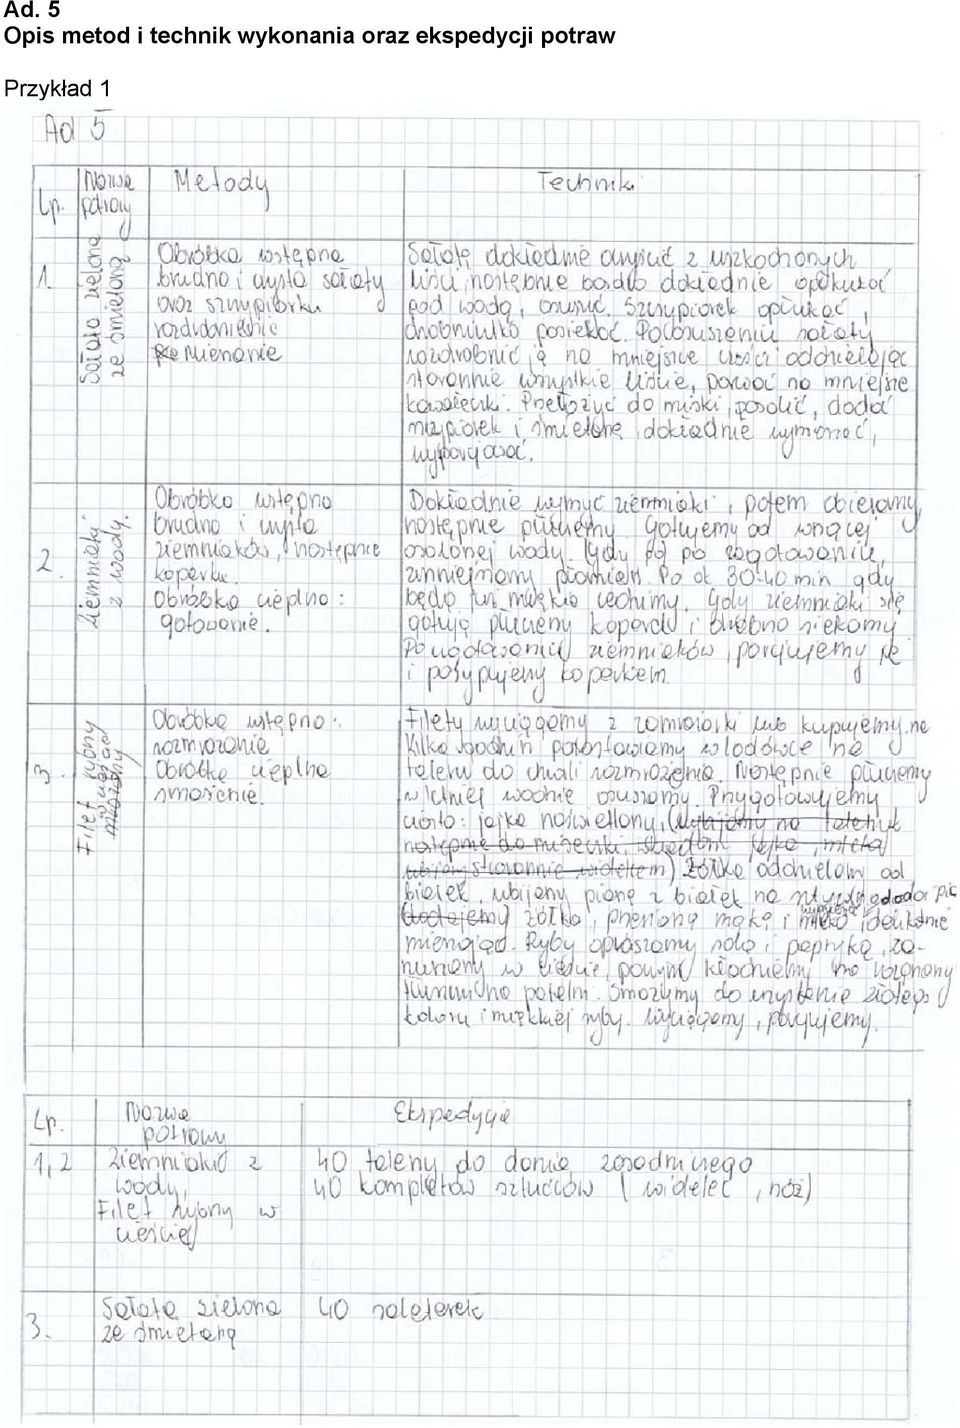 Ad. 5
Opis metod i technik wykonania oraz ekspedycji potraw
Przykład 1
Ad 5
Lp.
Nazwa
potrawy
Metody
Techniki
1.
Sałata zielona
ze śmietaną
Obróbka wstępna
brudna i czysta sałaty
oraz szczypiorku
rozdrobnienie
mienanie
Sałatę dokładnie oczyścić z uszkodzonych
liści, następnie bardzo dokładnie opłukać
pod wodą, osuszyć. Szczypiorek opłukać,
drobniutko posiekać. Po osuszeniu sałaty
rozdrobnić ją na mniejsze części oddzielając
starannie wszystkie liście, porwać na mniejsze
kawałeczki. Przełożyć do miski, posolić, dodać
szczypiorek i śmietanę, dokładnie wymieszać,
wyporcjować.
2.
Ziemniaki
z wody.
Obróbka wstępna
brudna i czysta
ziemniaków, następnie
koperku.
Obróbka cieplna:
gotowanie.
Dokładnie wymyć ziemniaki, potem obieramy
następnie płuczemy. Gotujemy od wrzącej
osolonej wody. Gdy po zagotowaniu,
zmniejszamy płomień. Po ok 30-40 min gdy
będą już miękkie cedzimy. Gdy ziemniaki się
gotują płuczemy koperek i drobno siekamy.
Po ugotowaniu ziemniaków, porcjujemy je
i posypujemy koperkiem.
3.
Filet rybny
Obróbka wstępna:
rozmrożenie
Obróbka cieplna
smażenie.
Filety wyciągamy z zamrażarki lub kupujemy, na
kilka godzin pozostawiamy w lodówce na
talerzu do chwili rozmrożenia. Następnie płuczemy
w letniej wodzie osuszamy. Przygotowujemy
ciasto: jajka naświetlamy, (Wybijamy na talerzyk
następnie do miseczki
ubijamy starannie widelcem) żółtka oddzielamy od
białek, ubijamy pianę z białek na sztywno dodając
dodajemy żółtka, przesianą mąkę i mleko, delikatnie
mieszając. Ryby oprószamy solą i papryką, za-
nurzamy w cieście, kładziemy na rozgrzany
tłuszcz na patelni. Smażymy do uzyskania złotego
koloru i miękkiej ryby. Wyciągamy, porcjujemy.
Lp.
Nazwa
potrawy
Ekspedycja
1,2
Ziemniaki z
wody,
Filet rybny w
cieście
40 talerzy do dania zasadniczego
40 kompletów sztućców (widelec, nóż)
3.
Sałata zielona
ze śmietaną
40 salaterek